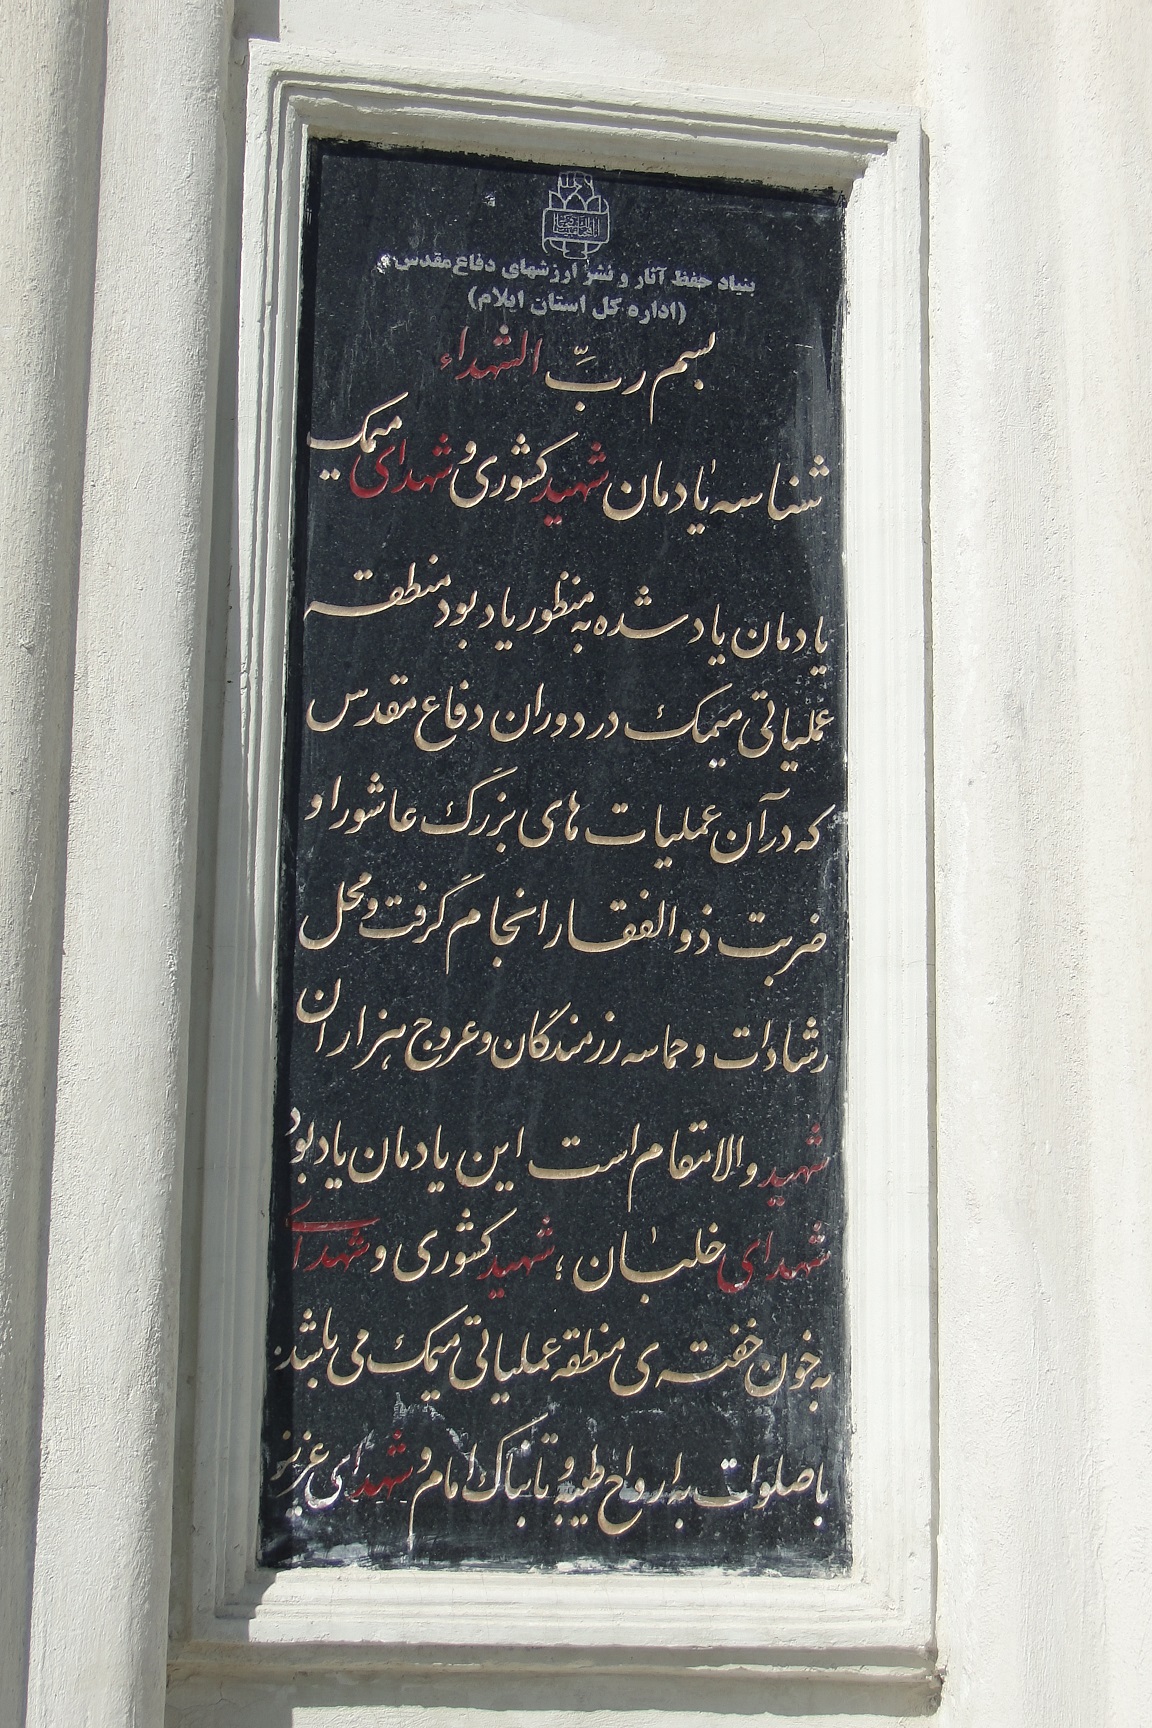 بنیاد حفظ آثار و نشر ارزشهای دفاع مقدس
(اداره کل استان ایلام)
بسم ربّ الشهداء
شناسه یادمان شهید کشوری و شهدای میمک
یادمان یاد شده به منظور یادبود منطقه
عملیاتی میمک در دوران دفاع مقدس
که در آن عملیات های بزرگ عاشورا و
ضربت ذوالفقار انجام گرفت و محل
رشادات و حماسه رزمندگان و عروج هزاران
شهید والامقام است این یادمان یادبود
شهدای خلبان ؛ شهید کشوری و شهدای
به خون خفته ی منطقه عملیاتی میمک می باشد.
با صلوات به ارواح طیبه و تابناک امام و شهدای عزیز